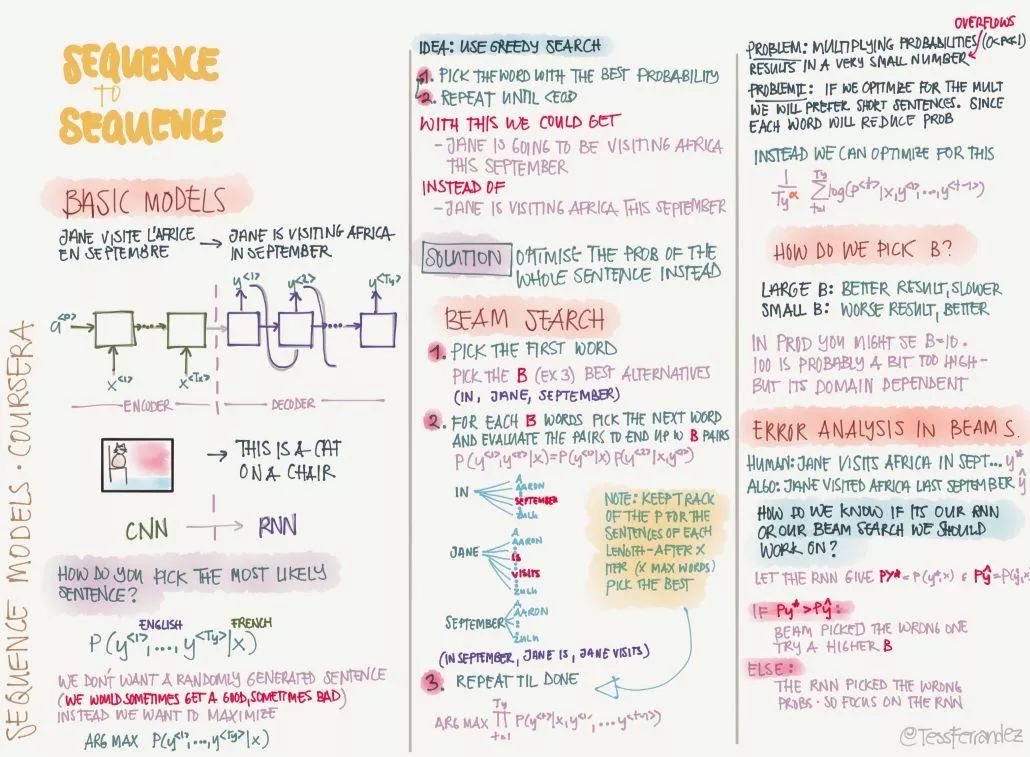 SEQUENCE
TO
SEQUENCE
BASIC MODELS
JANE VISITE L'AFRICE
EN SEPTEMBRE
→ JANE IS VISITING AFRICA
IN SEPTEMBER
y<1> y<2> y<Ty>
a<0>
x<1> x<Tx>
ENCODER DECODER
→ THIS IS A CAT
ON A CHAIR
CNN → RNN
HOW DO YOU PICK THE MOST LIKELY
SENTENCE?
ENGLISH FRENCH
P(y<1>,..., y<Ty>|x)
WE DON'T WANT A RANDOMLY GENERATED SENTENCE
(WE WOULD SOMETIMES GET A GOOD, SOMETIMES BAD)
INSTEAD WE WANT TO MAXIMIZE
ARG MAX P(y<1>,..., y<Ty>|x)
SEQUENCE MODELS · COURSERA
IDEA: USE GREEDY SEARCH
1. PICK THE WORD WITH THE BEST PROBABILITY
2. REPEAT UNTIL <EOS>
WITH THIS WE COULD GET
- JANE IS GOING TO BE VISITING AFRICA
THIS SEPTEMBER
INSTEAD OF
- JANE IS VISITING AFRICA THIS SEPTEMBER
SOLUTION OPTIMISE THE PROB OF THE
WHOLE SENTENCE INSTEAD
BEAM SEARCH
1. PICK THE FIRST WORD
PICK THE B (EX 3) BEST ALTERNATIVES
(IN, JANE, SEPTEMBER)
2. FOR EACH B WORDS PICK THE NEXT WORD
AND EVALUATE THE PAIRS TO END UP W B PAIRS
P(y<1>,y<2>|x)=P(y<1>|x) P(y<2>|x,y<1>)
IN
A
AARON
SEPTEMBER
ZULU
JANE
A
AARON
IS
VISITS
ZULU
SEPTEMBER
A
AARON
ZULU
NOTE: KEEP TRACK
OF THE P FOR THE
SENTENCES OF EACH
LENGTH - AFTER X
ITER (X MAX WORDS)
PICK THE BEST
(IN SEPTEMBER, JANE IS, JANE VISITS)
3. REPEAT TIL DONE
Ty
ARG MAX ∏ P(y<t>|x,y<1>,... y<t-1>)
t=1
OVERFLOWS
PROBLEM: MULTIPLYING PROBABILITIES (0<P≪1)
RESULTS IN A VERY SMALL NUMBER
PROBLEM II: IF WE OPTIMIZE FOR THE MULT
WE WILL PREFER SHORT SENTENCES. SINCE
EACH WORD WILL REDUCE PROB
INSTEAD WE CAN OPTIMIZE FOR THIS
1/Ty^α ∑ t=1 Ty log(P<t>|x,y<1>,...,y<t-1>)
HOW DO WE PICK B?
LARGE B: BETTER RESULT, SLOWER
SMALL B: WORSE RESULT, BETTER
IN PROD YOU MIGHT SE B=10.
100 IS PROBABLY A BIT TOO HIGH -
BUT ITS DOMAIN DEPENDENT
ERROR ANALYSIS IN BEAM S.
HUMAN: JANE VISITS AFRICA IN SEPT... y*
ALGO: JANE VISITED AFRICA LAST SEPTEMBER ŷ
HOW DO WE KNOW IF ITS OUR RNN
OR OUR BEAM SEARCH WE SHOULD
WORK ON?
LET THE RNN GIVE Py*=P(y*,x) & Pŷ=P(ŷ,x
IF Py*>Pŷ:
BEAM PICKED THE WRONG ONE
TRY A HIGHER B
ELSE:
THE RNN PICKED THE WRONG
PROBS · SO FOCUS ON THE RNN
@TessFerrandez